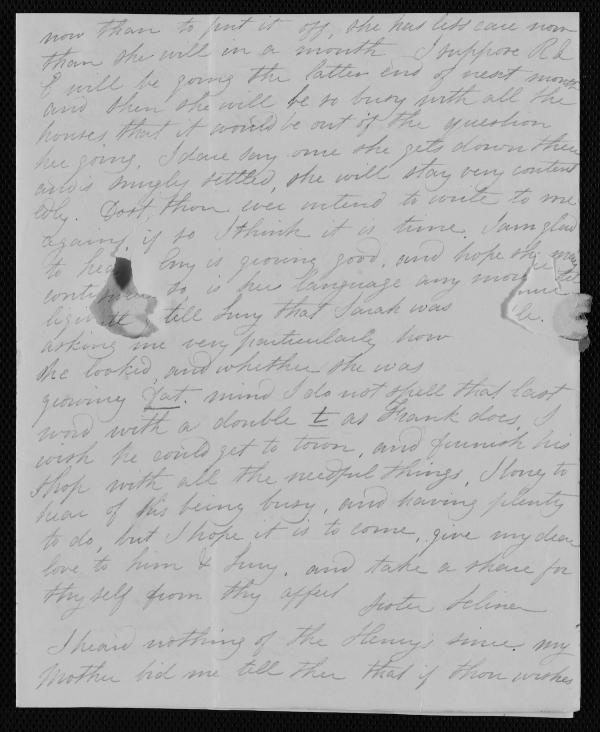 now than to put it off, she has less care now
than she will in a month I suppose R &
E will be going the latter end of next month
and then she will be so busy with all the
houses that it would be out of the question
her going, I dare say once she gets down there
and is snugly settled, she will stay very content
edly. Dost thou ever intend to write to me
again, if so I think it is time, I am glad
to hear is growing good, and hope she may
so is her language any more
till Lucy that Sarah was
asking me very particularly how
she looked, and whether she was
growing fat. mind I do not spell that last
word with a double t as Frank does, I
wish he could get to town, and furnish his
shop with all the needful things, I long to
hear of his being busy, and having plenty
to do, but I hope it is to come, give my dear
love to him & Lucy. and take a share for
thyself from thy affect
sister
I heard nothing of the Henrys since. my
Mother bid me tell thee that if thou wishes